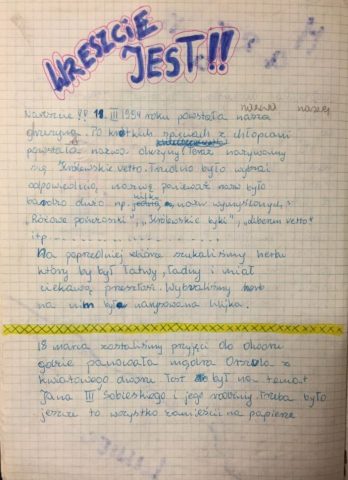 WRESZCIE
JEST!!
nazwa naszej
Nareszcie !!! 18. III 1994 roku powstała nasza
drużyna. Po krótkich z chłopcami
powstała nazwa drużyny! Teraz nazywamy
się "Królewskie Vetto". Trudno było wybrać
odpowiednią nazwę ponieważ nazw było
bardzo dużo np. kilka nazw wymyślonych:
"Różowe poduszki", "Królewskie byki", "Liberum vetto"
itp.
Na poprzedniej zbiórce szukaliśmy herbu
który by był łatwy, ładny i miał
ciekawą przeszłość. Wybraliśmy herb
na nim była narysowana
18 marca zostaliśmy przyjęci do dworu
gdzie panowała mądra Orszula z
kwiatowego dworu. Test był na temat
Jana III Sobieskiego i jego rodziny. Trzeba było
jeszcze to wszystko zamieścić na papierze